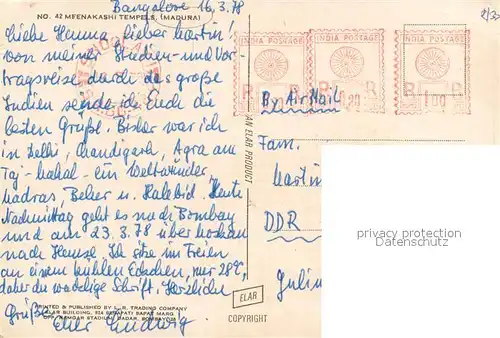 Bangalore 16.3.78
NO. 42 MEENAKASHI TEMPELS, (MADURA)
Liebe Henna, lieber Martin,
von meiner Studien- und Vor-
tragsreise durch das große
Indien sende ich Euch die
besten Grüße. Bisher war ich
in Delhi, Chandigarh, Agra am
Taj-Mahal - ein Weltwunder,
Madras, Belur u. Halebid. Heute
Nachmittag geht es nach Bombay
und am 23.3.78 über Moskau
nach Hause. Ich sitze im Freien
an einem kühlen Eckchen, nur 28°,
daher die wacklige Schrift. Herzliche
PRINTED & PUBLISHED BY TRADING COMPANY
ELAR BUILDING, SENAPATI BAPAT MARG
Grüße Euer Ludwig
INDIA POSTAGE
INDIA POSTAGE
INDIA POSTAGE
R R
0.20
R 1.00
By Air Mail
AN ELAR PRODUCT
Fam.
Martin
DDR
ELAR
COPYRIGHT
Datenschutz
Privacy Data protection